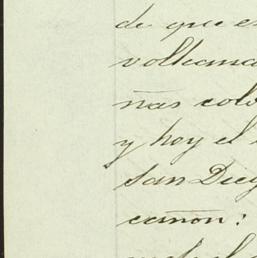 de que e
volcana
nas colo
y hoy el
San Dieg
cemon: